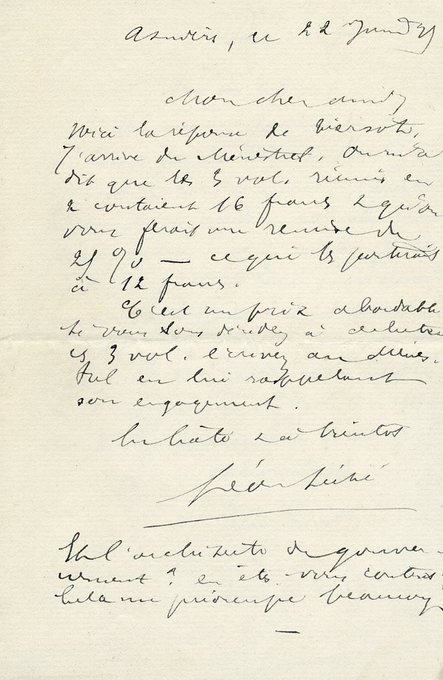 Asnières, le 22 Juin
Mon cher ami,
Voici la réponse de Tiersot.
J'arrive du Ménestrel. On m'a
dit que les 3 vol. réunis en
2 coûtaient 16 francs & qu'on
vous ferait une remise de
25 % — ce qui les portait
à 12 francs.
C'est un prix abordable
Si vous vous décidez à acheter
ces 3 vol. écrivez au Ménes-
trel en lui rappelant
son engagement.
En hâte & à bientôt
Léon Séché
Et l'architecte du gouver-
nement ? en êtes-vous content
Cela me préoccupe beaucoup